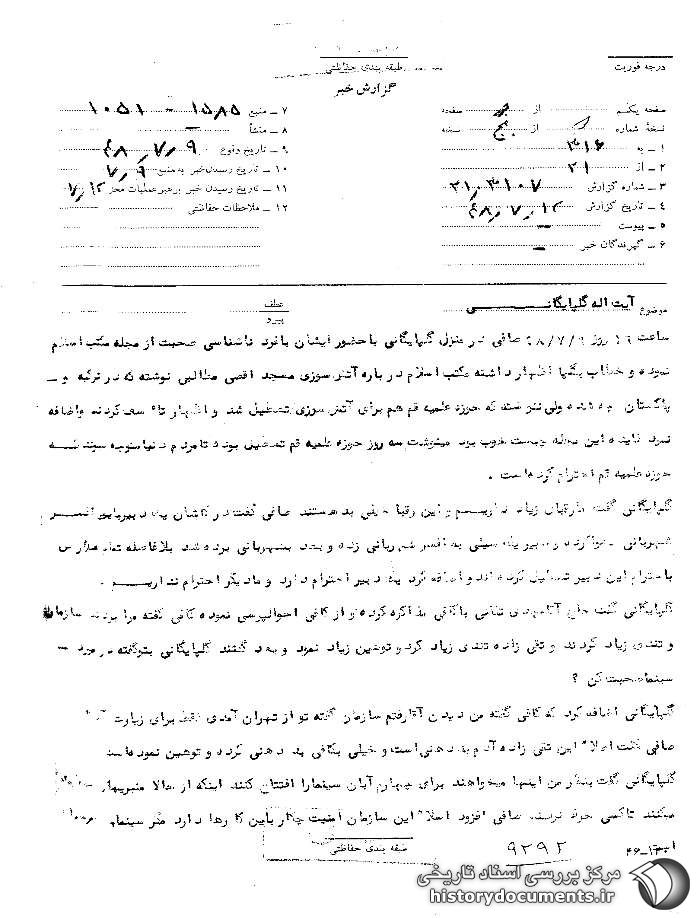 درجه فوریت
طبقه بندی حفاظتی
گزارش خبر
صفحه یکم از صفحه
نسخهٔ شماره از نسخه
۱ ـ به ۳۱۶
۲ ـ از ۲۱
۳ ـ شماره گزارش ۲۱٫۳۱۰۷
۴ ـ تاریخ گزارش ۴۸٫۷٫۱۲
۵ ـ پیوست ـ
۶ ـ گیرندگان خبر ـ
۷ ـ منبع ۱۵۸۵ - ۱۰۵۱
۸ ـ منشأ ـ
۹ ـ تاریخ وقوع ۴۸٫۷٫۹
۱۰ ـ تاریخ رسیدن خبر به منبع ۷٫۹
۱۱ ـ تاریخ رسیدن خبر برهبر عملیات ۷٫۱۲
۱۲ ـ ملاحظات حفاظتی
موضوع آیت اله گلپایگانی
عطف
پیرو
ساعت روز ۴۸/۷/۹ صافی در منزل گلپایگانی با حضور ایشان با فرد ناشناسی صحبت از مجله مکتب اسلام
نموده و خطاب اظهار داشته مکتب اسلام در باره آتش سوزی مسجد اقصی مطالبی نوشته که در ترکیه و ـ
پاکستان چه شده ولی ننوشته که حوزه علمیه قم هم برای آتش سوزی تعطیل شد و اظهار تأسف کردند و اضافه
نمود فایده این مجله چیست خوب بود مینوشت سه روز حوزه علمیه قم تعطیل بوده تا مردم دنیا متوجه میشدند
حوزه علمیه قم احترام کرده است .
گلپایگانی گفت ما رقبای زیاد داریم و این رقبا خیلی بد هستند صافی گفت در کاشان یک دبیر با یک افسر
شهربانی دعوا کرده و دبیر یک سیلی به افسر شهربانی زده و بعد بشهربانی برده شد بلافاصله تمام مدارس
باحترام این دبیر تعطیل کرده اند و اضافه کرد یک دبیر احترام دارد و ما دیگر احترام نداریم .
گلپایگانی گفت حاج آقا مهدی با کافی مذاکره کرده و از کافی احوالپرسی نموده کافی گفته مرا بردند سازمان
و تندی زیاد کردند و تقی زاده تندی زیاد کرد و توهین زیاد نمود و بعد گفتند گلپایگانی بتو گفته در مورد ـ
سینما صحبت کن ؟
گلپایگانی اضافه کرد که کافی گفته من دیدن آقا رفتم سازمان گفته تو از تهران آمدی فقط برای زیارت آقا
صافی گفت اصلا" این تقی زاده آدم بد دهنی است و خیلی بکافی بد دهنی کرده و توهین نموده است
گلپایگانی گفت بنظر من اینها میخواهند برای چهارم آبان سینما را افتتاح کنند اینکه از حالا منبریها
میکنند تا کسی حرف نزند صافی افزود اصلا" این سازمان امنیت چکار باین کارها دارد مگر سینما
طبقه بندی حفاظتی
۹۲۹۲
۴۶-۱۳
مرکز بررسی اسناد تاریخی
historydocuments.ir